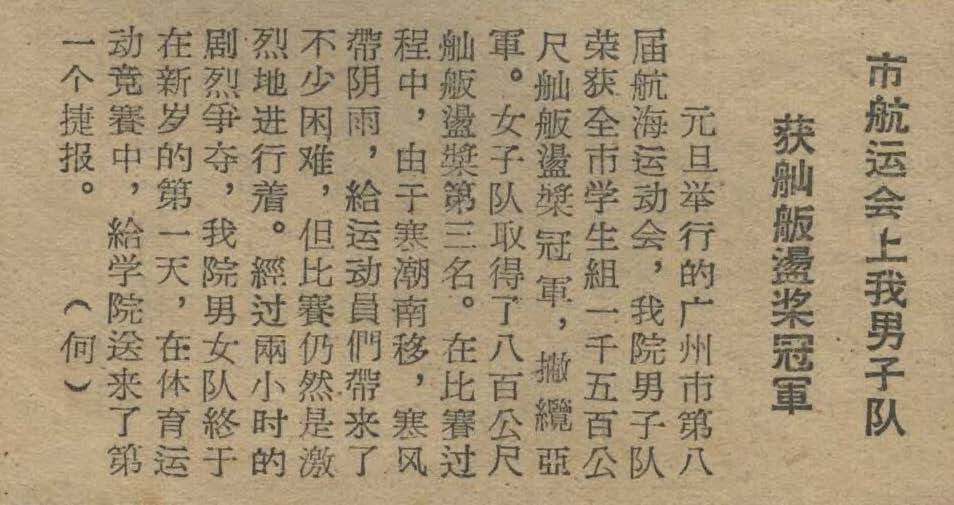 市航运会上我男子队
获舢舨盪桨冠軍
元旦举行的广州市第八
届航海运动会，我院男子队
荣获全市学生組一千五百公
尺舢舨盪桨冠軍，撇纜亞
軍。女子队取得了八百公尺
舢舨盪桨第三名。在比賽过
程中，由于寒潮南移，寒风
帶阴雨，給运动員們帶来了
不少困难，但比賽仍然是激
烈地进行着。經过兩小时的
剧烈争夺，我院男女队終于
在新岁的第一天，在体育运
动竞賽中，給学院送来了第
一个捷报。（何）